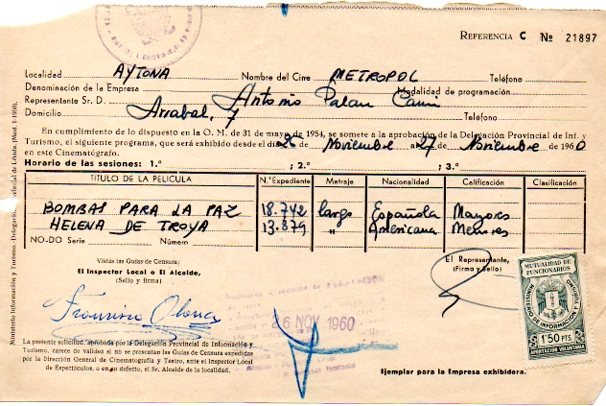 REFERENCIA C Nº 21897
Localidad AYTONA Nombre del Cine METROPOL Teléfono
Denominación de la Empresa Modalidad de programación
Representante Sr. D. Antonio Palau
Domicilio Arrabal, 7 Teléfono
En cumplimiento de lo dispuesto en la O. M. de 31 de mayo de 1954, se somete a la aprobación de la Delegación Provincial de Inf. y
Turismo, el siguiente programa, que será exhibido desde el día 26 Noviembre al 27 de Noviembre de 1960
en este Cinematógrafo.
Horario de las sesiones: 1.ª ; 2.ª ; 3.ª
TITULO DE LA PELICULA N.º Expediente Metraje Nacionalidad Calificación Clasificación
BOMBAS PARA LA PAZ 18.742 largo Española Mayores
HELENA DE TROYA 13.879 " Americana Menores
NO-DO Serie Número
Vistas las Guías de Censura:
El Inspector Local o El Alcalde,
(Sello y firma)
El Representante,
(Firma y Sello)
MUTUALIDAD DE
FUNCIONARIOS
MINISTERIO DE INFORMACION Y TURISMO
1'50 PTS
APORTACION VOLUNTARIA
26 NOV 1960
La presente solicitud, aprobada por la Delegación Provincial de Información y
Turismo, carece de validez si no se presentan las Guías de Censura expedidas
por la Dirección General de Cinematografía y Teatro, ante el Inspector Local
de Espectáculos, o en su defecto, el Sr. Alcalde de la localidad.
Ejemplar para la Empresa exhibidora.
Ministerio Información y Turismo.-Delegación Provincial de Lérida. (Mod. 1-1959).